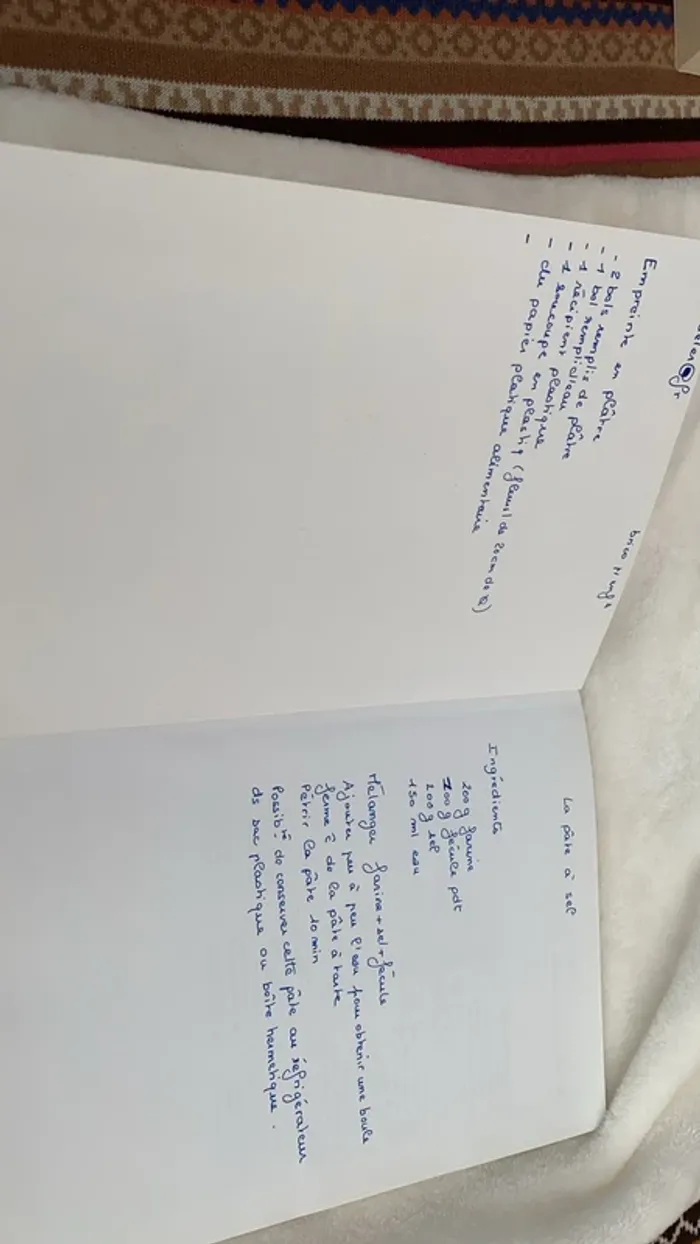 Empreinte en plâtre
- 2 bols remplis
- 1 bol remplis de plâtre
- 1 récipient d'eau
- 1 soucoupe plastique
- du papier en plastiq de 20 cm de
- plastique alimentaire
La pâte à sel
Ingrédients
200g farine
100g fécule pdt
200g sel
150 ml eau
Mélanger farine + sel + fécule
Ajouter peu à peu l'eau pour obtenir une boule
ferme c de la pâte à tarte
Pétrir la pâte 10 min
Possibté de conserver cette pâte au réfrigérateur
ds sac plastique ou boîte hermetique.